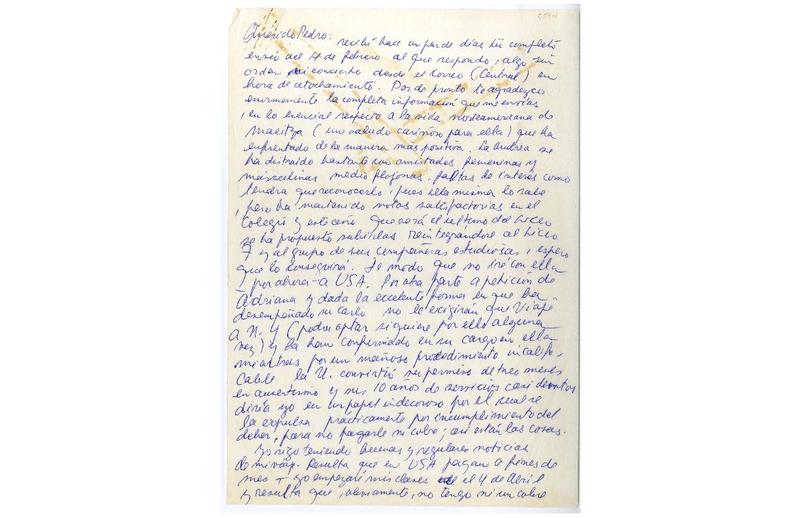 Querido Pedro: recibí hace un par de días tu completo
envío del 4 de febrero al que respondo, algo sin
orden ni concierto desde el Correo (Central) en
hora de atochamiento. Por de pronto te agradezco
enormemente la completa información que me envías
, en lo esencial respecto a la vida norteamericana de
Maritza (un saludo cariñoso para ella) que ha
enfrentado de la manera más positiva. La Andrea se
ha distraído bastante con amistades femeninas y
masculinas medio flojonas, faltas de interés como
tendrá que reconocerlo, pues ella misma lo sabe
, pero ha mantenido notas satisfactorias en el
Colegio y este año que será el último del Liceo
se ha propuesto subirlas reintegrándose al Liceo
7 y al grupo de sus compañeras estudiosas, espero
que lo conseguirá. De modo que no iré con ella
, por ahora, a USA. Por otra parte a petición de
Adriana y dada la excelente forma en que ha
desempeñado su cargo no le exigirán que viaje
a N. Y (podrá optar si quiere por ello alguna
vez) y la han confirmado en su cargo en ella
mientras por un mañoso procedimiento incalifi-
cable la U. convirtió su permiso de tres meses
en ausentismo y sus 10 años de servicios casi
diría yo en un papel indecoroso por el cual se
la expulsa prácticamente por incumplimiento del
deber, para no pagarle ni cobre; así están las cosas.
Yo sigo teniendo buenas y regulares noticias
de mi viaje. Resulta que en USA pagan a fines de
mes y yo empezaré mis clases el 4 de Abril
y resulta que, obviamente, no tengo ni un cobre